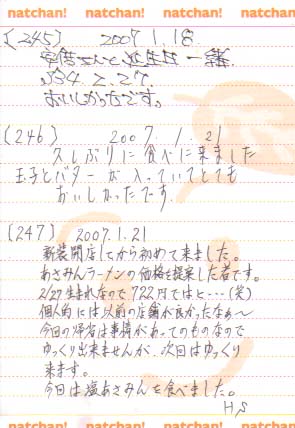 natchan! natchan! natchan! natchan!
(245) 2007.1.18
一緒
S34.2.27.
おいしかったです。
(246) 2007.1.21
久しぶりに食べに来ました
玉子とバターが入っていてとても
おいしかったです.
(247) 2007.1.21
新装開店してから初めて来ました。
あさみんラーメンの価格を提案した者です。
2/27生まれなので722円ではと…(笑)
個人的には以前の店舗が良かったなぁ〜
今回の帰省は事情があってのものなので
ゆっくり出来ませんが、次回はゆっくり
来ます。
今回は塩あさみんを食べました。
H,S
natchan! natchan! natchan! natchan!